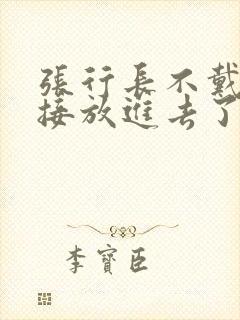 張行長不戴
接放進去了
李寶臣